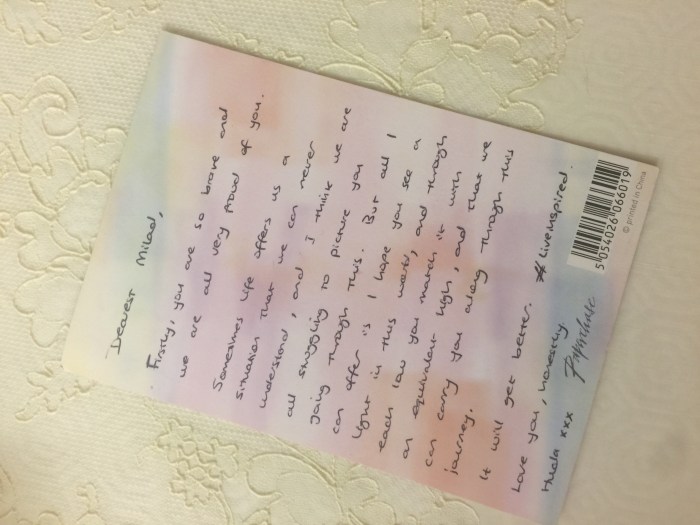 Dearest Milad,
Firstly, you are so brave and
we are all very proud of you.
Sometimes life offers us a
situation that we can never
understand, and I think we are
all struggling to picture you
going through this. But all I
can offer is I hope you see a
light in this world, and through
each low you match it with
an equivalent high, and that we
can carry you along through this
journey.
It will get better. #liveinspired.
Love you, honestly
Huda xxx
Paperchase
5 054026 066019
© printed in China